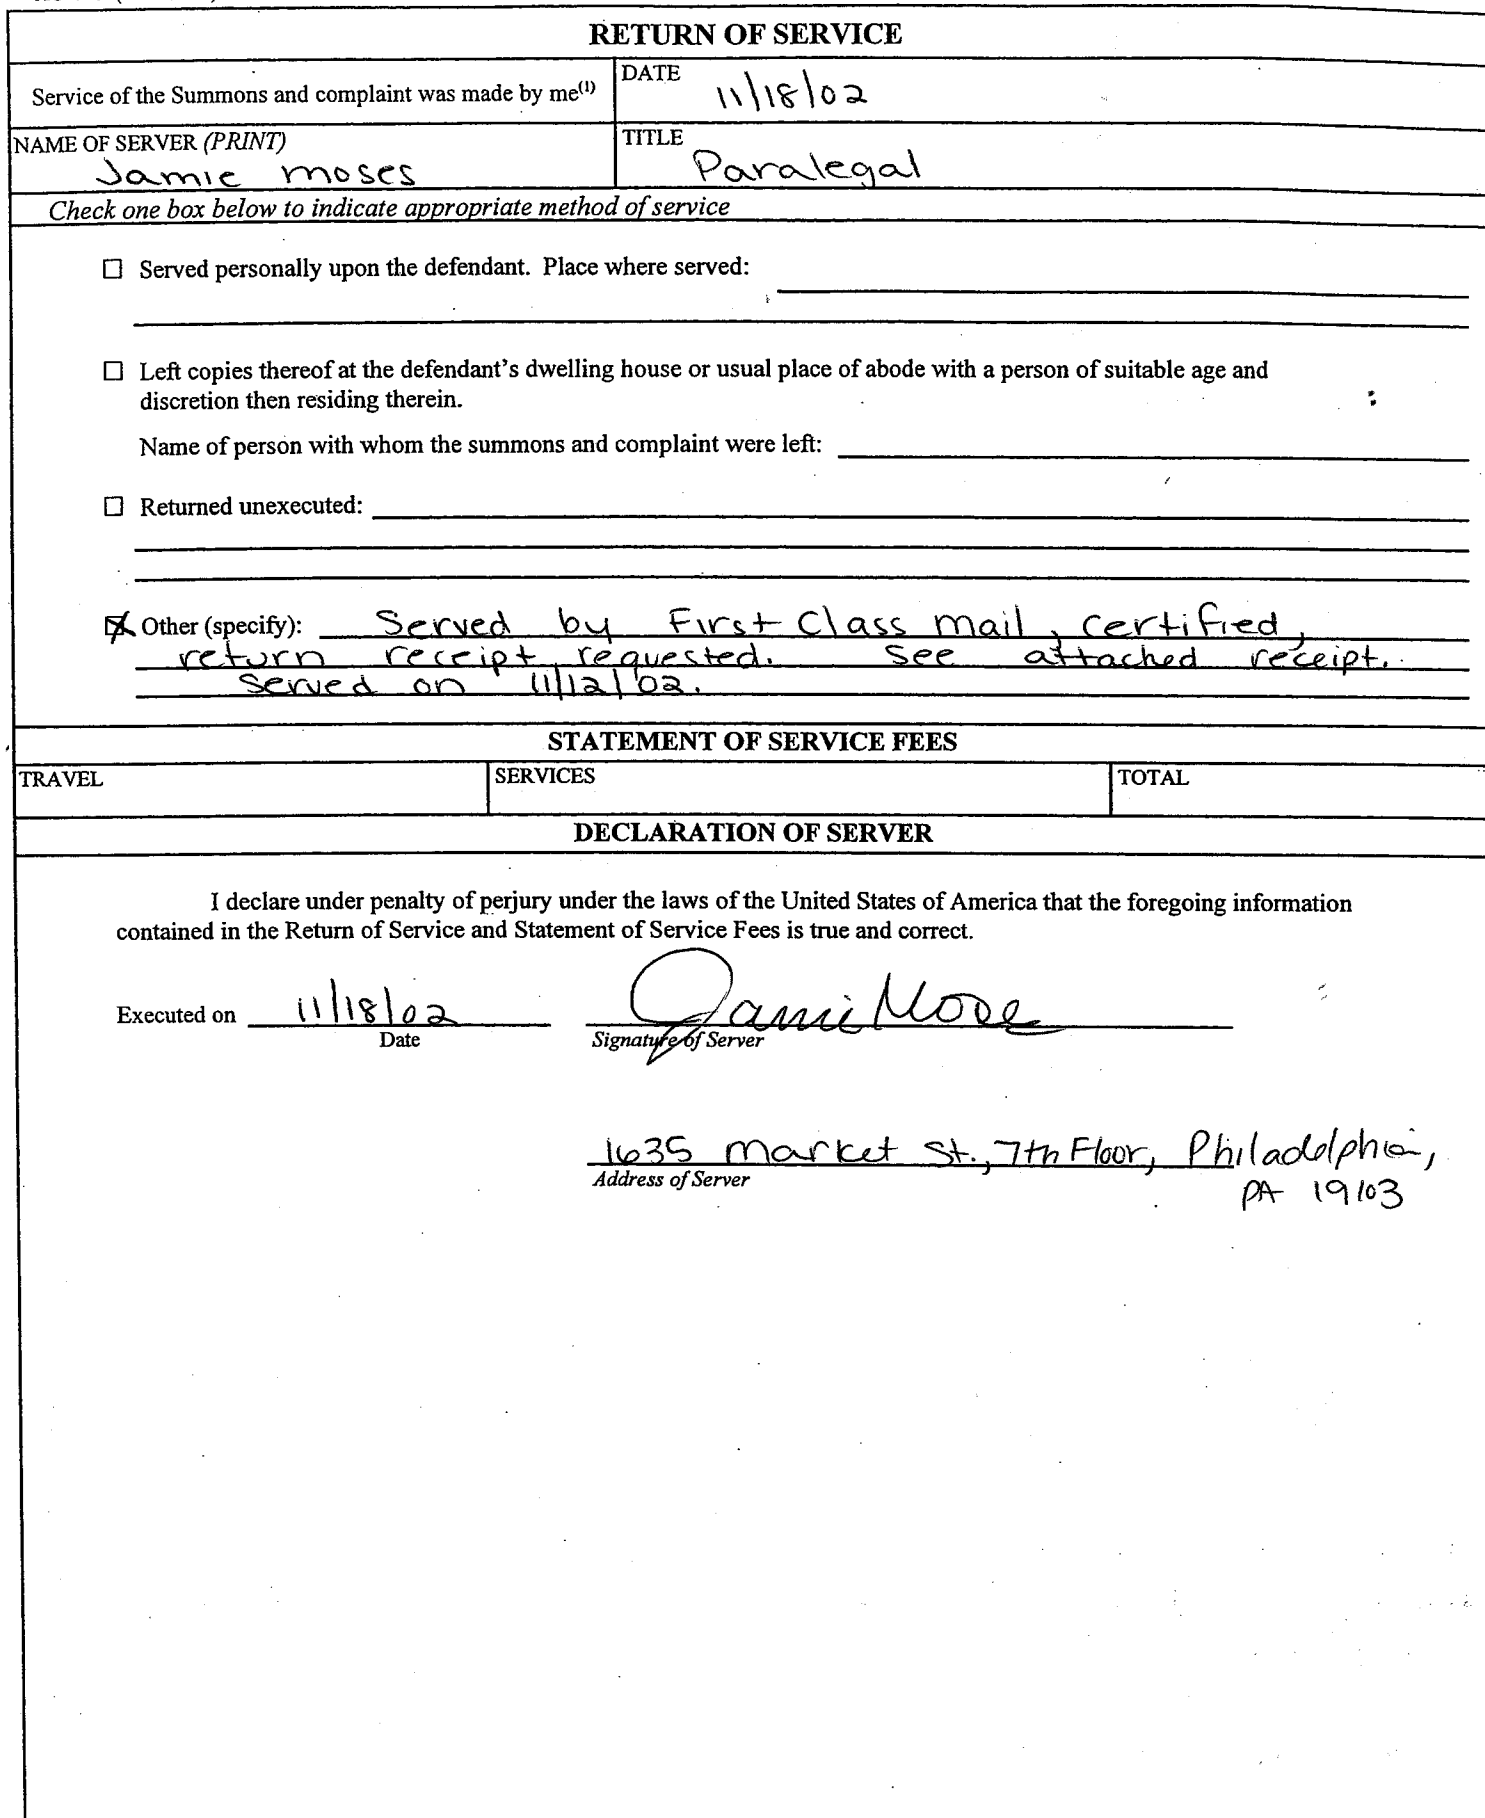 RETURN OF SERVICE
Service of the Summons and complaint was made by me(1)
DATE
11/18/02
NAME OF SERVER (PRINT)
Jamie Moses
TITLE
Paralegal
Check one box below to indicate appropriate method of service
☐ Served personally upon the defendant. Place where served:
☐ Left copies thereof at the defendant's dwelling house or usual place of abode with a person of suitable age and
discretion then residing therein.
Name of person with whom the summons and complaint were left:
☐ Returned unexecuted:
☒ Other (specify): Served by First Class mail, certified,
return receipt requested. See attached receipt.
Served on 11/12/02.
STATEMENT OF SERVICE FEES
TRAVEL
SERVICES
TOTAL
DECLARATION OF SERVER
I declare under penalty of perjury under the laws of the United States of America that the foregoing information
contained in the Return of Service and Statement of Service Fees is true and correct.
Executed on 11/18/02
Jamie Moses
Date
Signature of Server
1635 Market St., 7th Floor, Philadelphia,
Address of Server
PA 19103